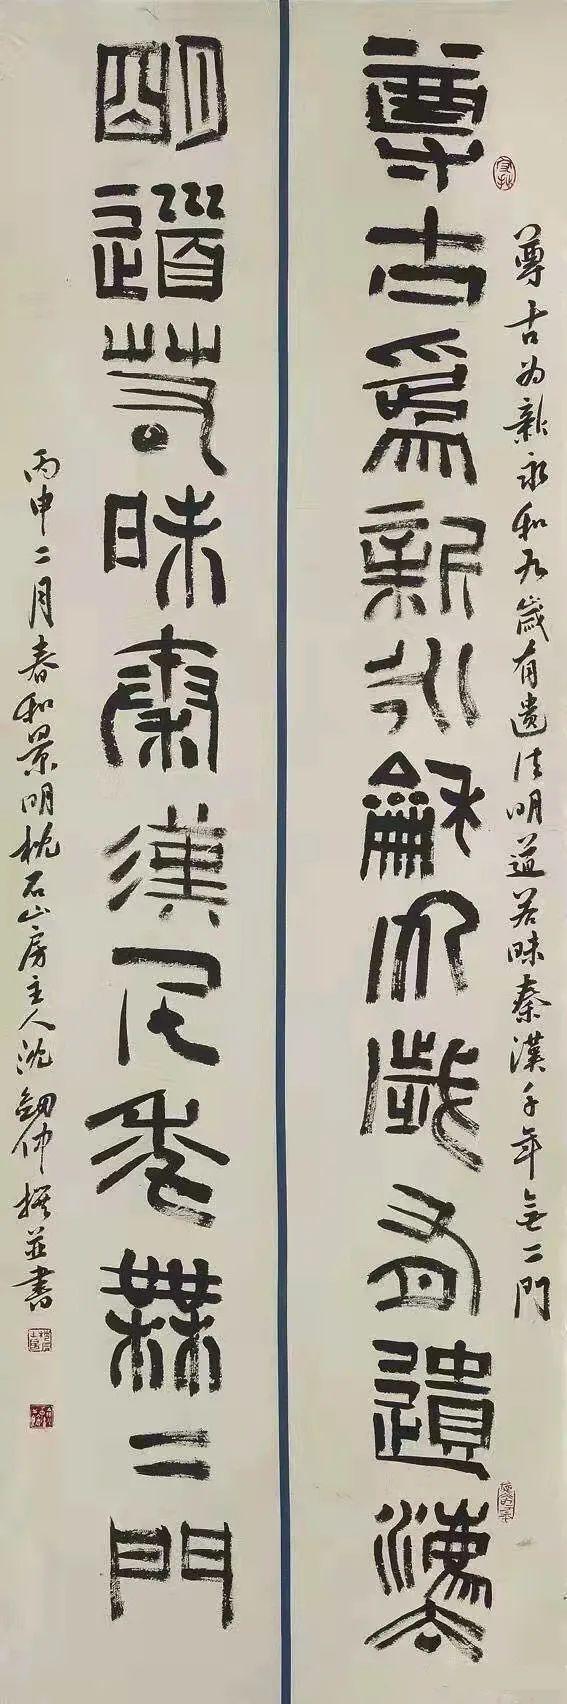 尊古为新永和九歲有遺法明道若昧秦漢千年無二門
尊古爲新永龢九歲有遺灋
明道若昧秦漢千年無二門
丙申二月春和景明枕石山房主人沈釰仲撰並書